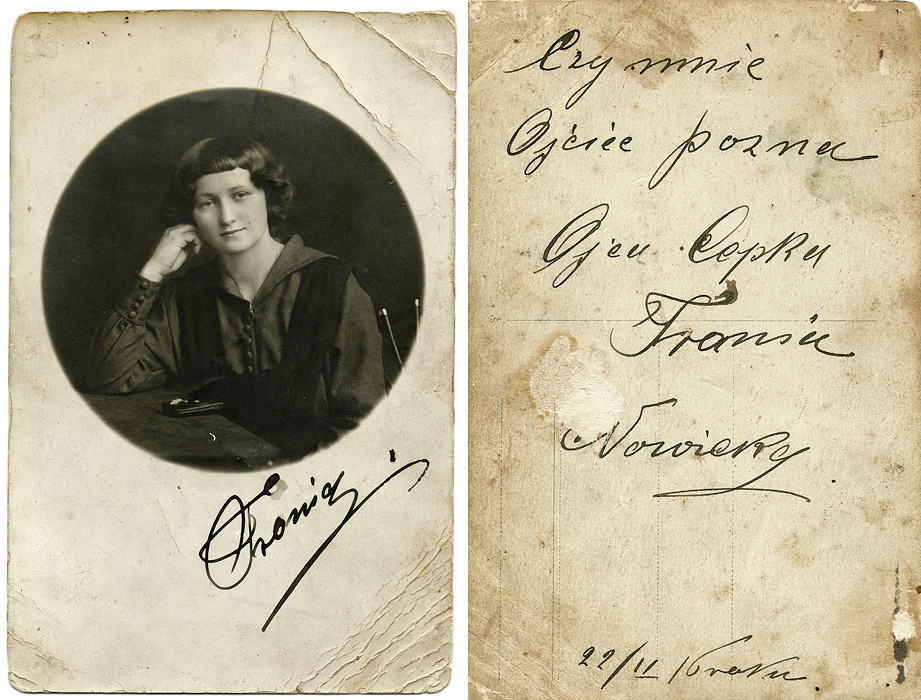 Frania
Czy mnie
Ojciec pozna
Ojcu Copka
Frania
Nowicky
22/II 16 roku